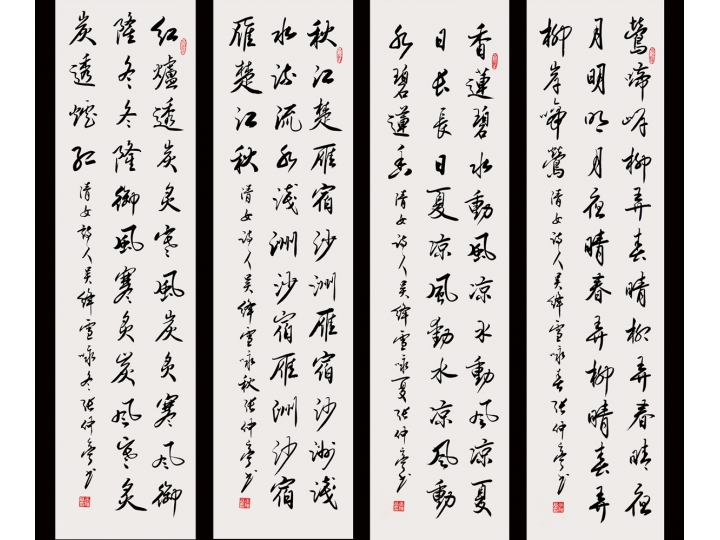 鶯啼岸柳弄春晴柳弄春晴夜
月明明月夜晴春弄柳晴春弄
柳岸啼鶯 清女詩人吴絳雪咏春张仲亭书
香蓮碧水動風凉水動风凉夏
日长長日夏凉風動水凉风動
水碧蓮香 清女诗人吴絳雪咏夏张仲亭书
秋江楚雁宿沙洲雁宿沙洲淺
水流流水淺洲沙宿雁洲沙宿
雁楚江秋 清女诗人吴絳雪咏秋张仲亭书
红爐透炭炙寒風炭炙寒风御
隆冬冬隆御風寒炙炭风寒炙
炭透炉红 清女詩人吴絳雪咏冬张仲亭书